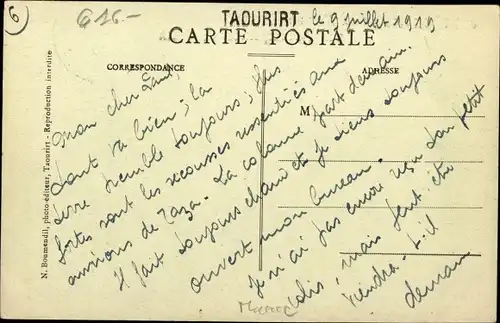 6
G16-
TAOURIRT le 9 juillet 1919
CARTE POSTALE
CORRESPONDANCE
ADRESSE
M
N. Boumendil, photo-éditeur, Taourirt - Reproduction interdite
Mon cher Paul,
tout va bien ; la
terre tremble toujours ; plus
fortes sont les secousses ressenties aux
environs de Taza. La colonne part demain.
Il fait toujours chaud et je tiens toujours
ouvert mon bureau.
Je n'ai pas encore reçu ton petit
colis, mais peut être
viendra-t-il
demain
Maroc